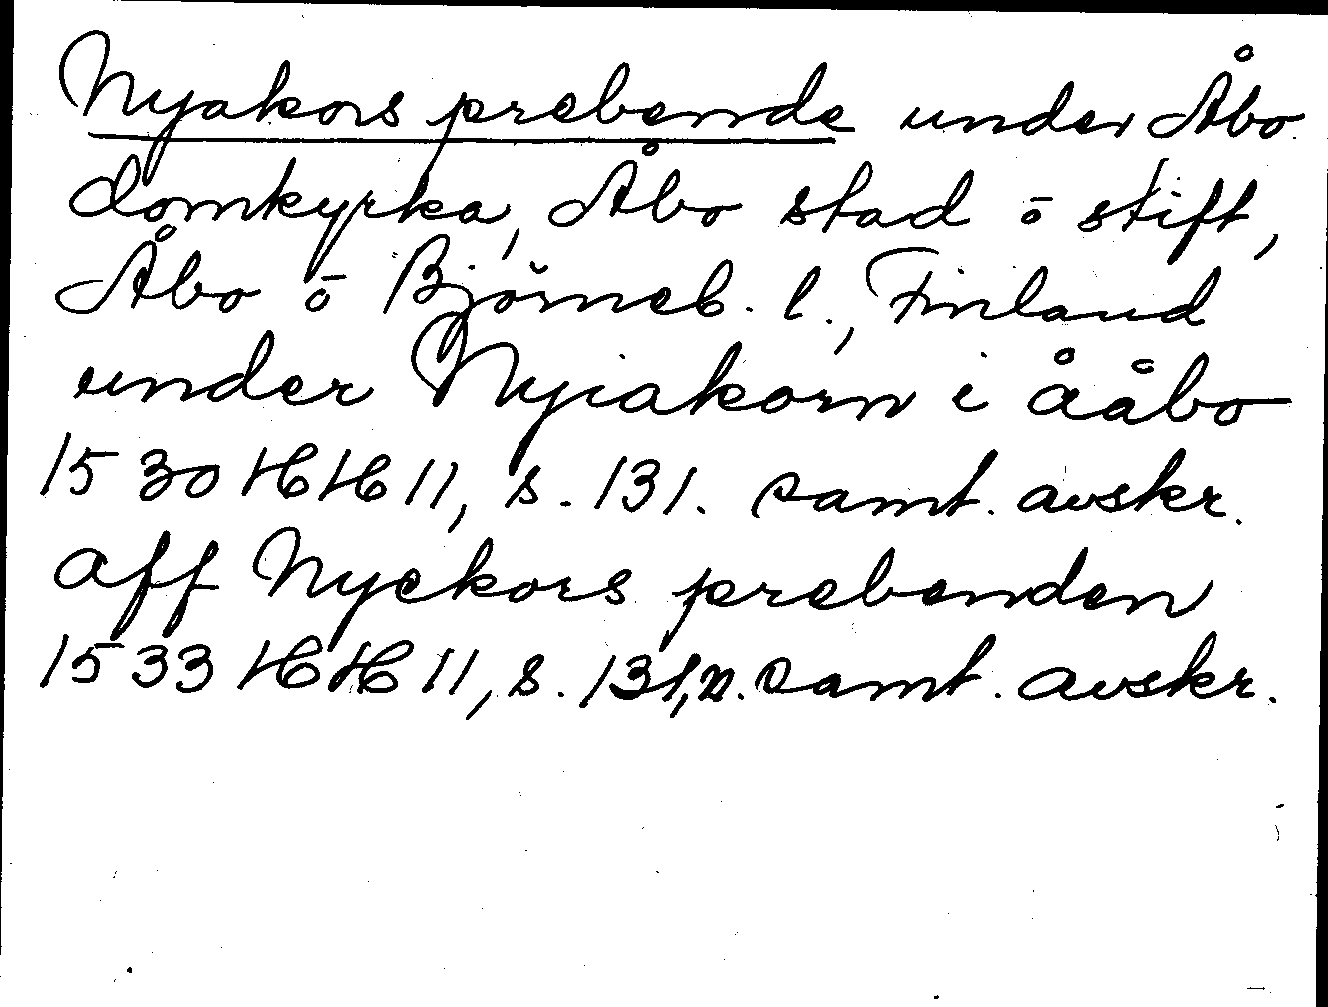 Nyakors prebende under Åbo
domkyrka, Åbo stad o stift,
Åbo o Björneb. l., Finland
under Nyiakorn i ååbo
1530 HH 11, s. 131. samt. avskr.
aff Nyekors prebenden
1533 HH 11, s. 131, n. samt. avskr.